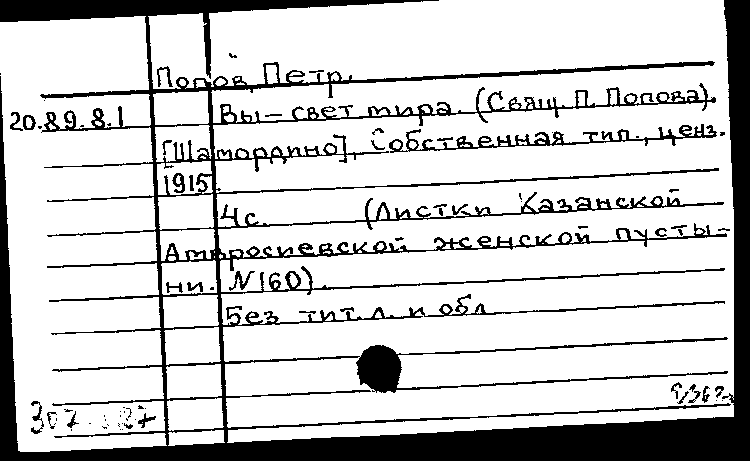 Попов, Петр.
20.89.8.1 Вы – свет мира. (Свящ. П. Попова).
[Шамордино], Собственная тип., ценз.
1915.
4с. (Листки Казанской
Амвросиевской женской пусты-
ни. №160).
Без тит. л. и обл
307 87